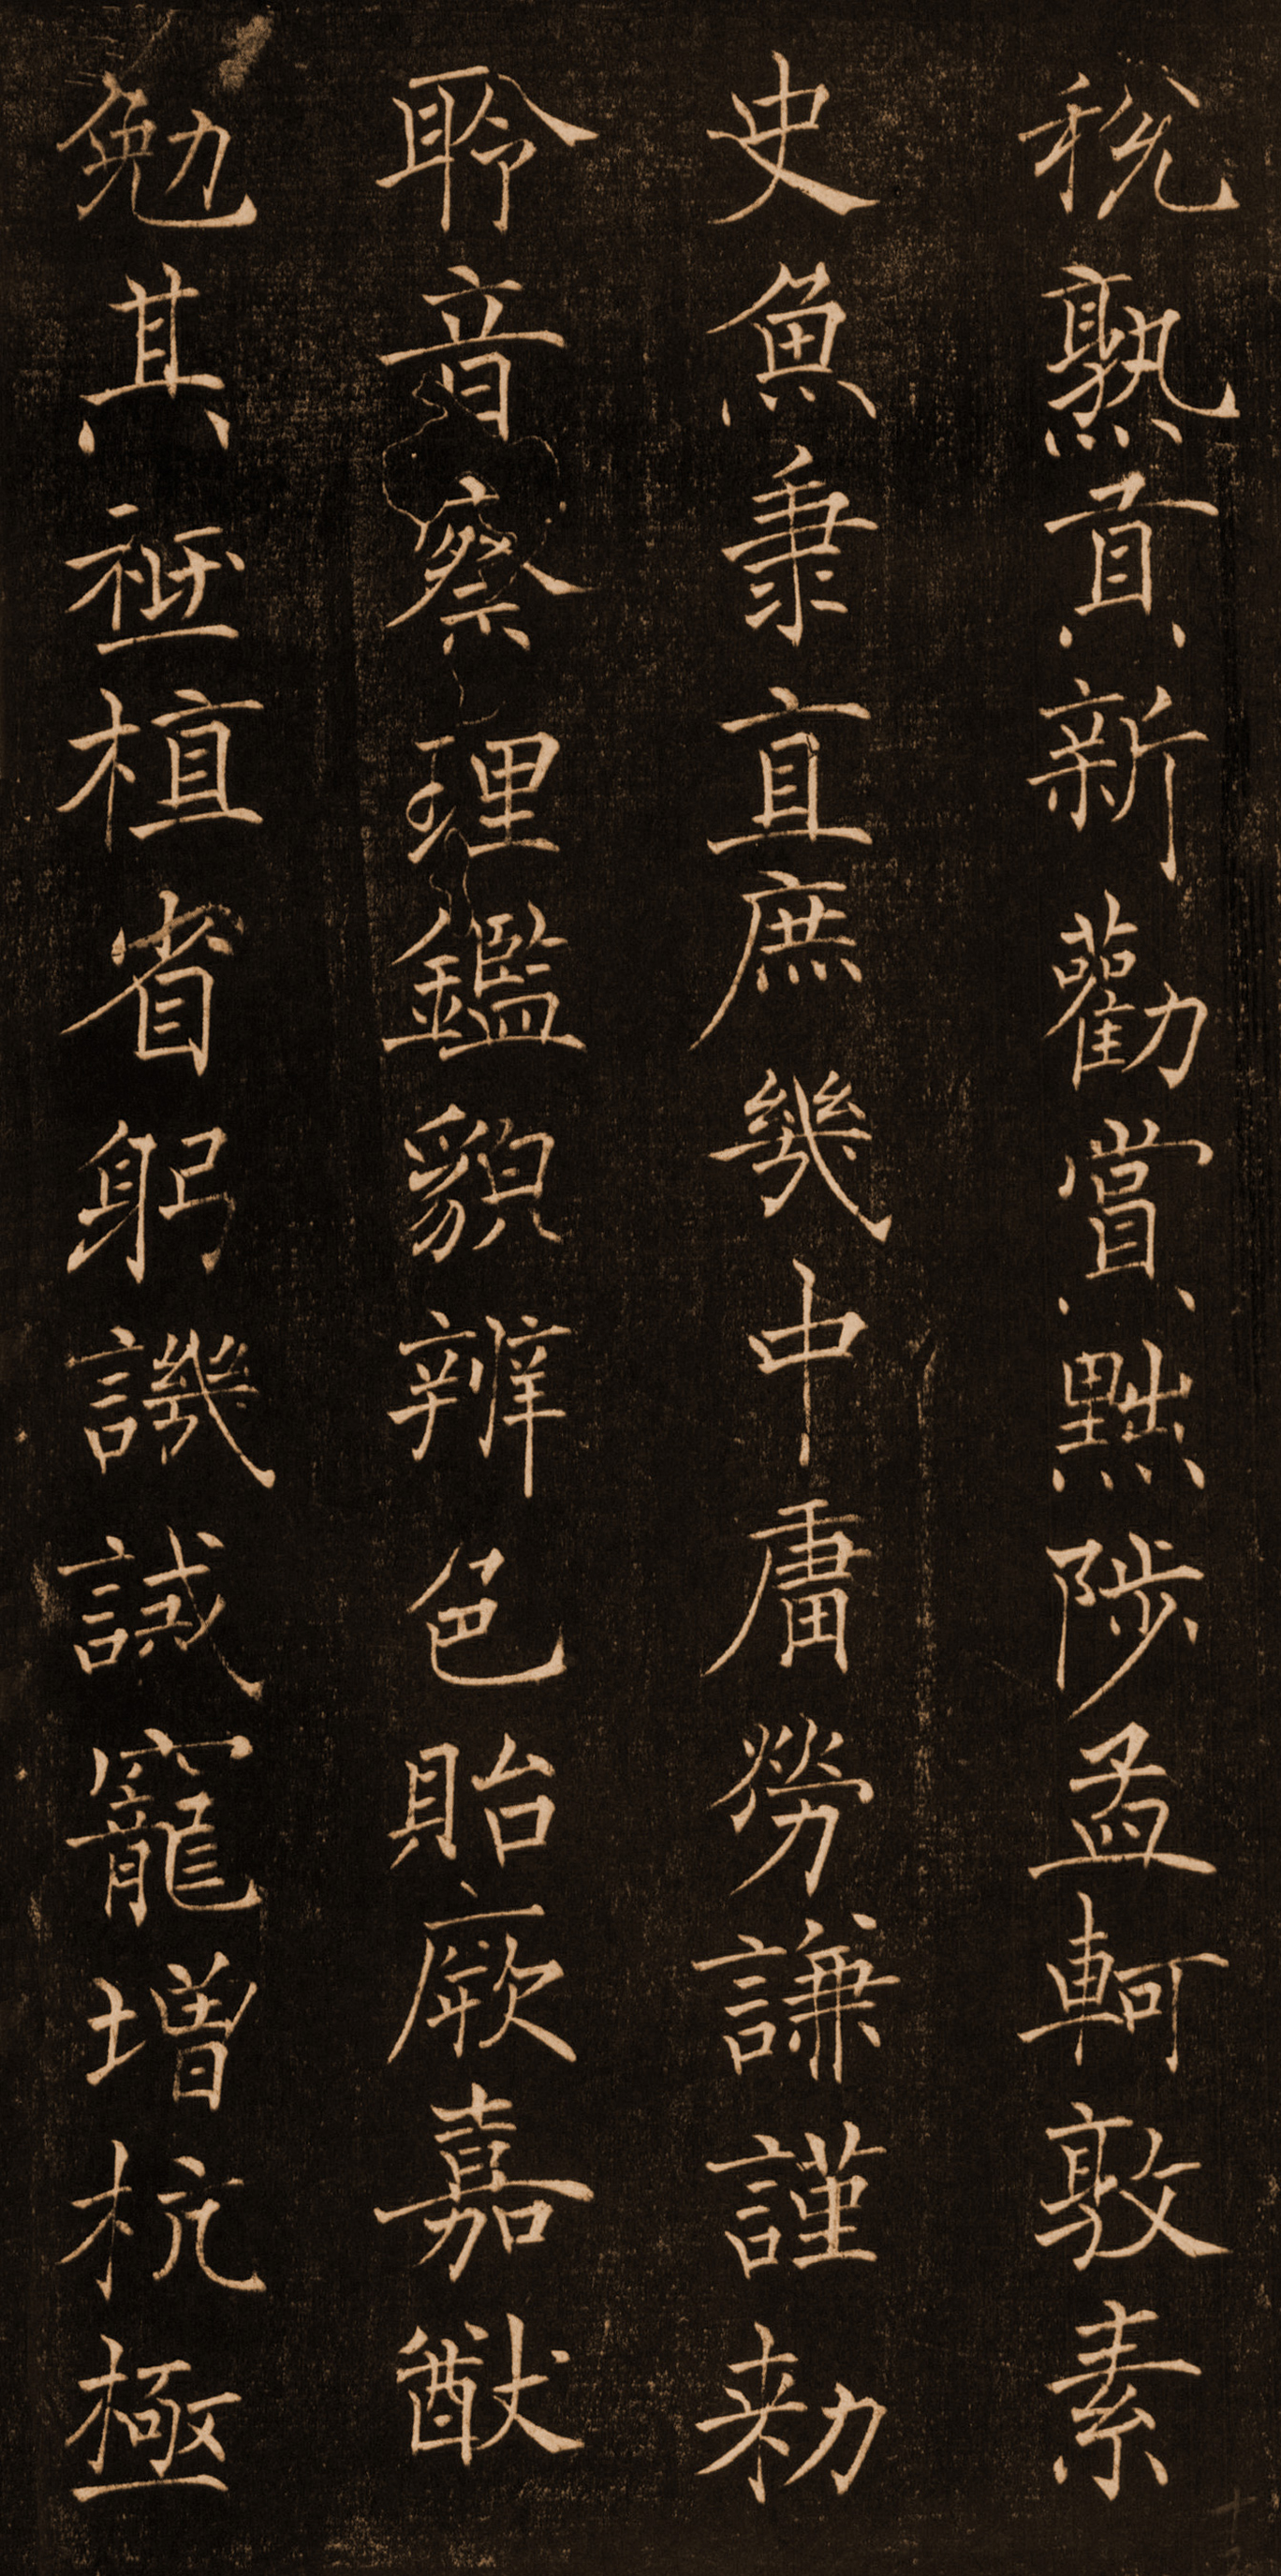 稅熟貢新勸賞黜陟孟軻敦素
史魚秉直庶幾中庸勞謙謹勅
聆音察理鑑貌辨色貽厥嘉猷
勉其祗植省躬譏誡寵增抗極